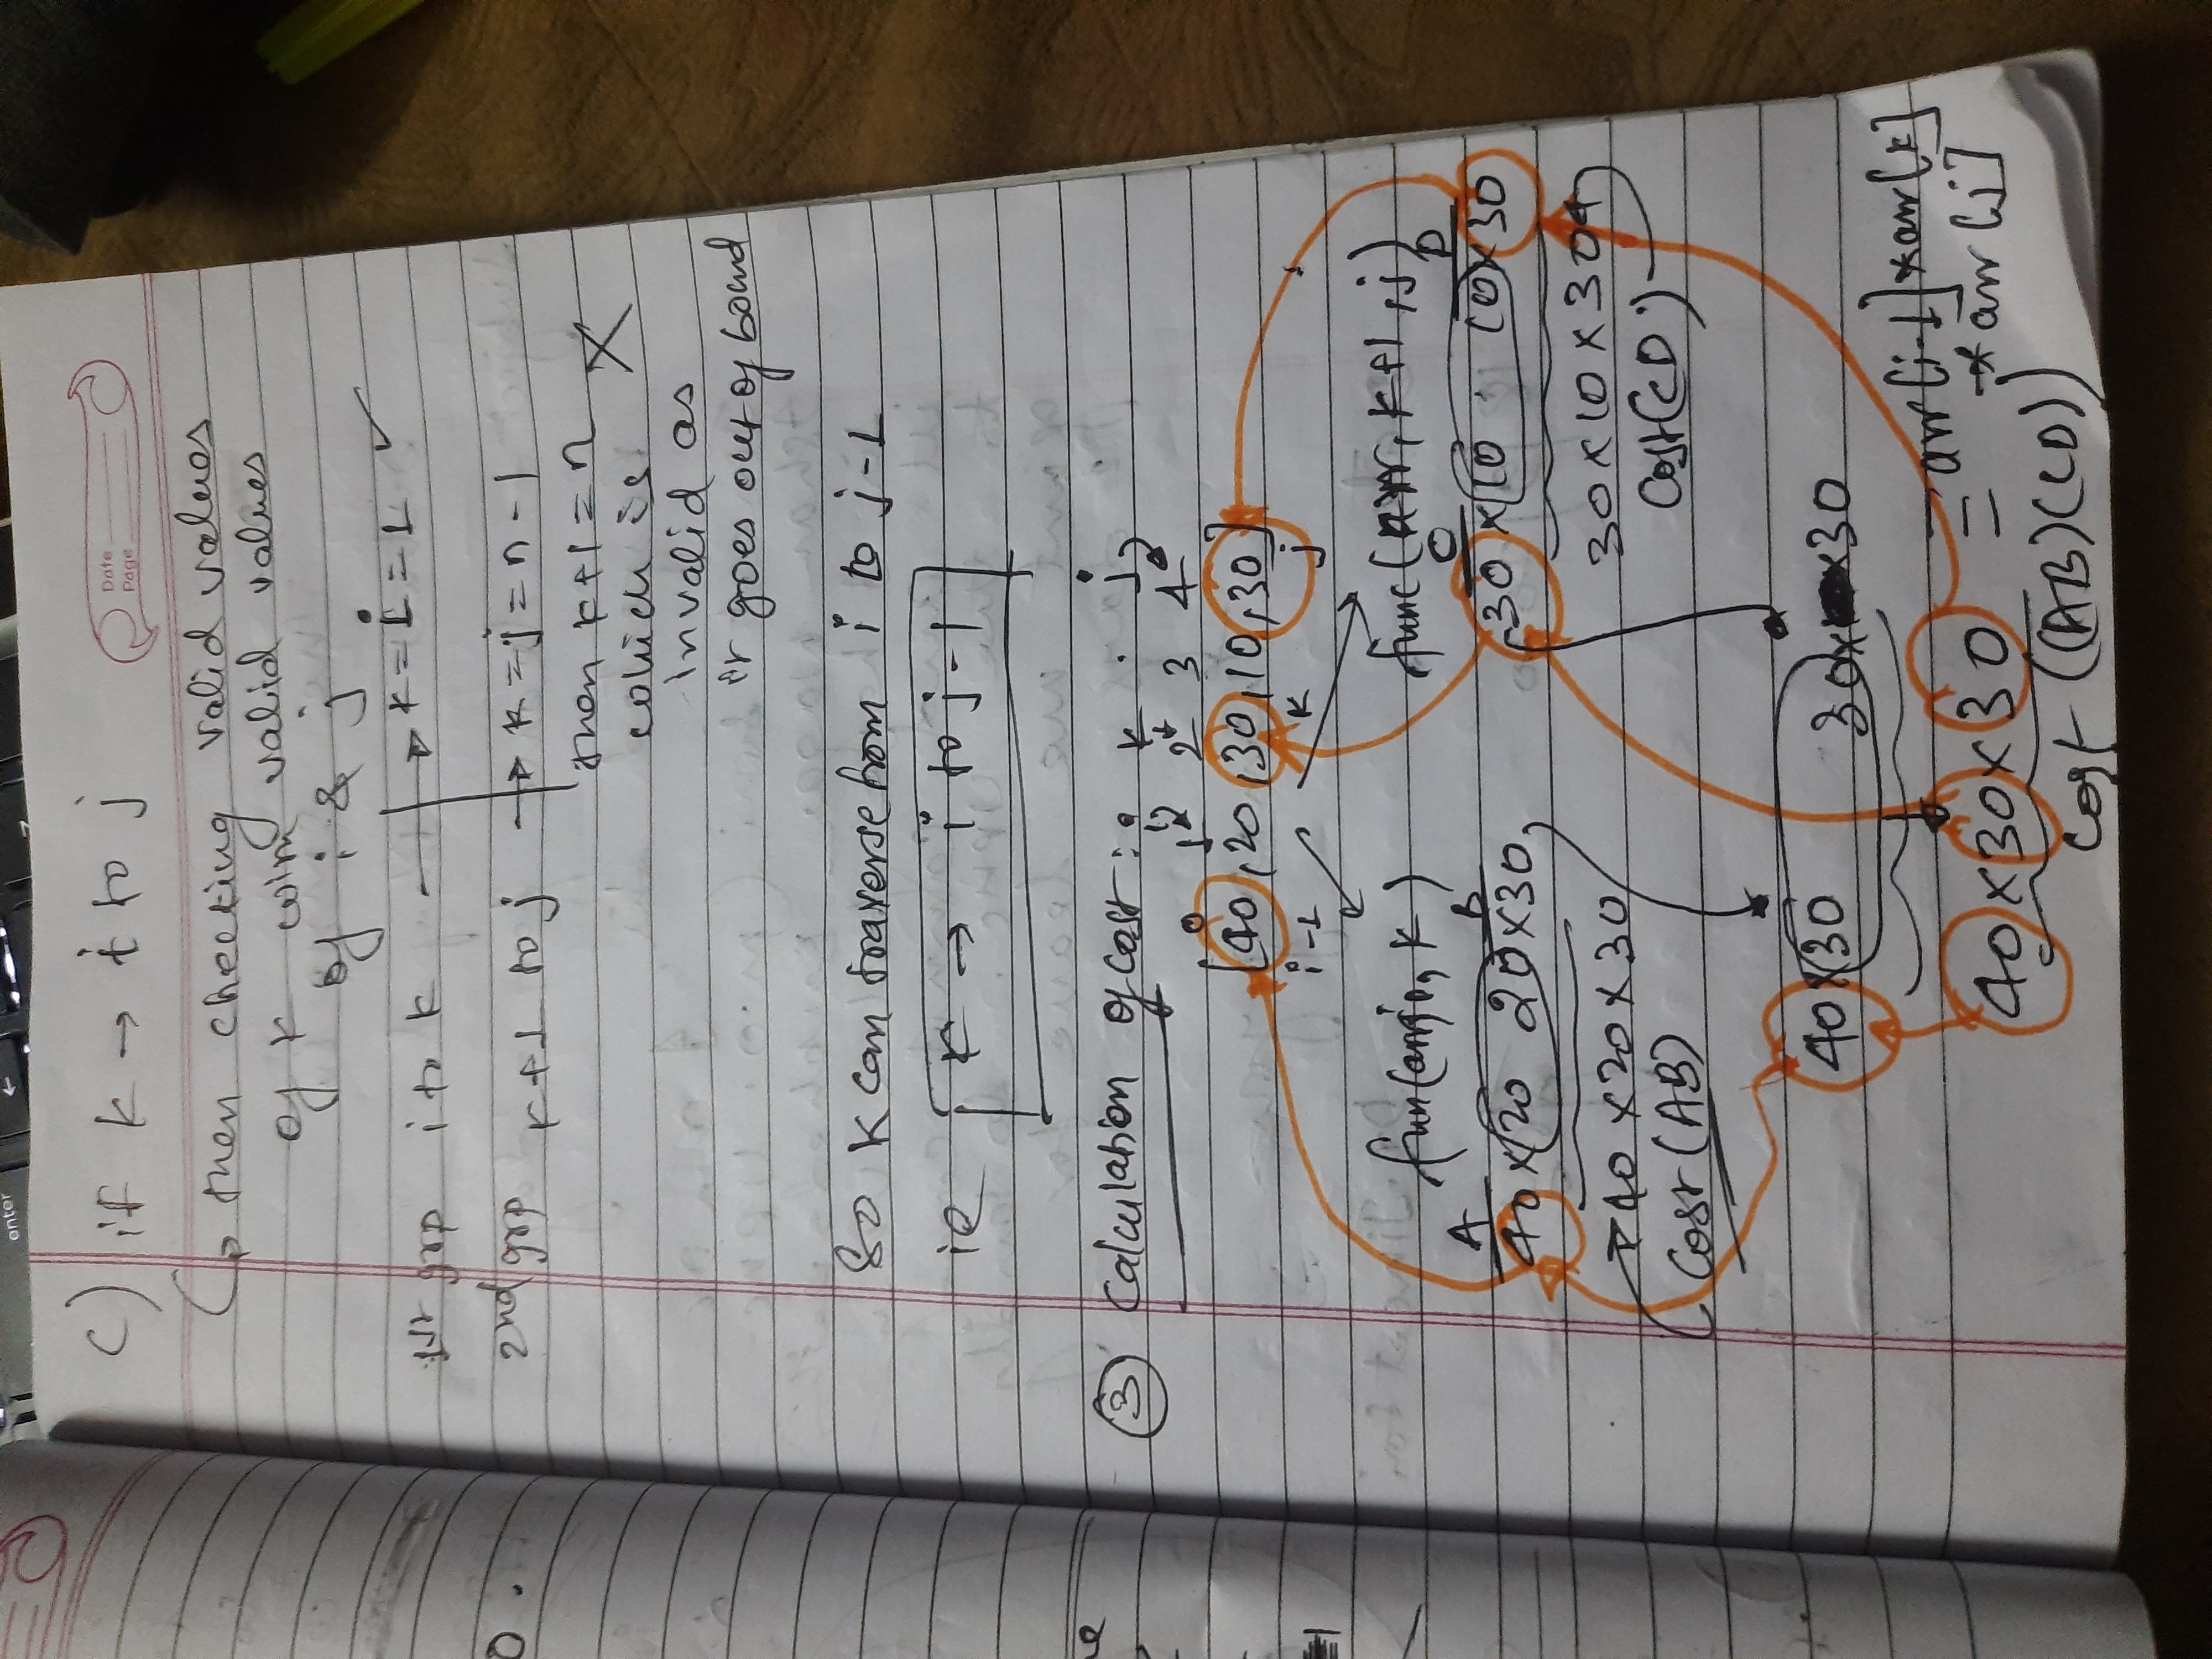 enter
Date
Page
c) if k → i to j
↳ then checking valid values
of k with valid values
of i & j
1st grp i to k → k = i = 1 ✓
2nd grp k+1 to j → k = j = n-1
then k+1 = n ✗
which is
invalid as
it goes out of bound
So k can traverse from i to j-1
ie k → i to j-1
③ Calculation of cost: i k j
0 1 2 3 4
[40, 20, 30, 10, 30]
i-1 k j
fun(arr, i, k) func(arr, k+1, j)
A B C D
40 x 20 20 x 30 30 x 10 10 x 30
40 x 20 x 30 30 x 10 x 30
Cost(AB) Cost(CD)
40 x 30 30 x 30
40 x 30 x 30 = arr[i-1] * arr[k]
* arr[j]
Cost ((AB)(CD))